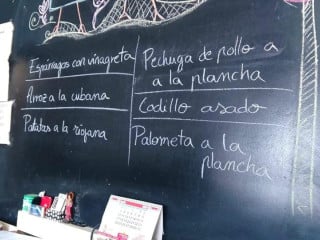 Espárragos con vinagreta
Arroz a la cubana
Patatas a la riojana
Pechuga de pollo a
a la plancha
Codillo asado
Palometa a la
plancha